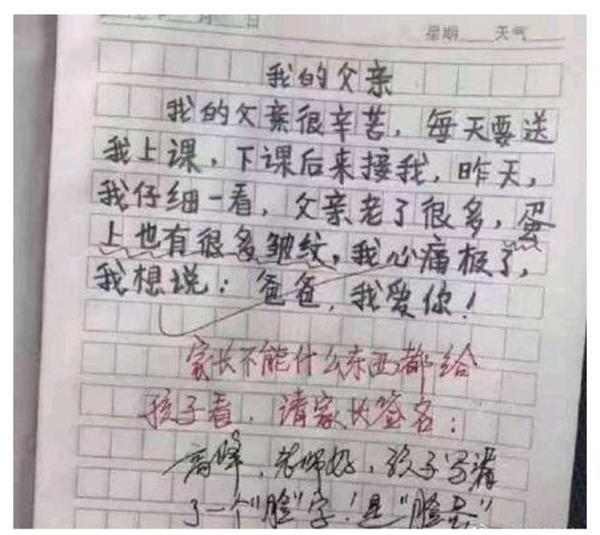 月 日 星期 天气
我的父亲
我的父亲很辛苦，每天要送
我上课，下课后来接我，昨天，
我仔细一看，父亲老了很多，蛋
上也有很多皱纹，我心痛极了，
我想说：爸爸，我爱你！
家长不能什么东西都给
孩子看，请家长签名：
高峰，老师好，孩子写漏
了一个"脸"字！是"脸蛋"